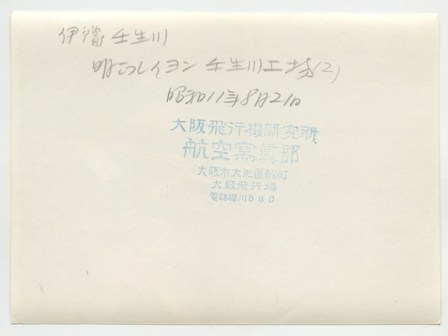 伊豫 壬生川
明正レイヨン 壬生川工場(2)
昭和11年8月21日
大阪飛行機研究所
航空寫眞部
大阪市大正區船町
大阪飛行場
電話櫻川660